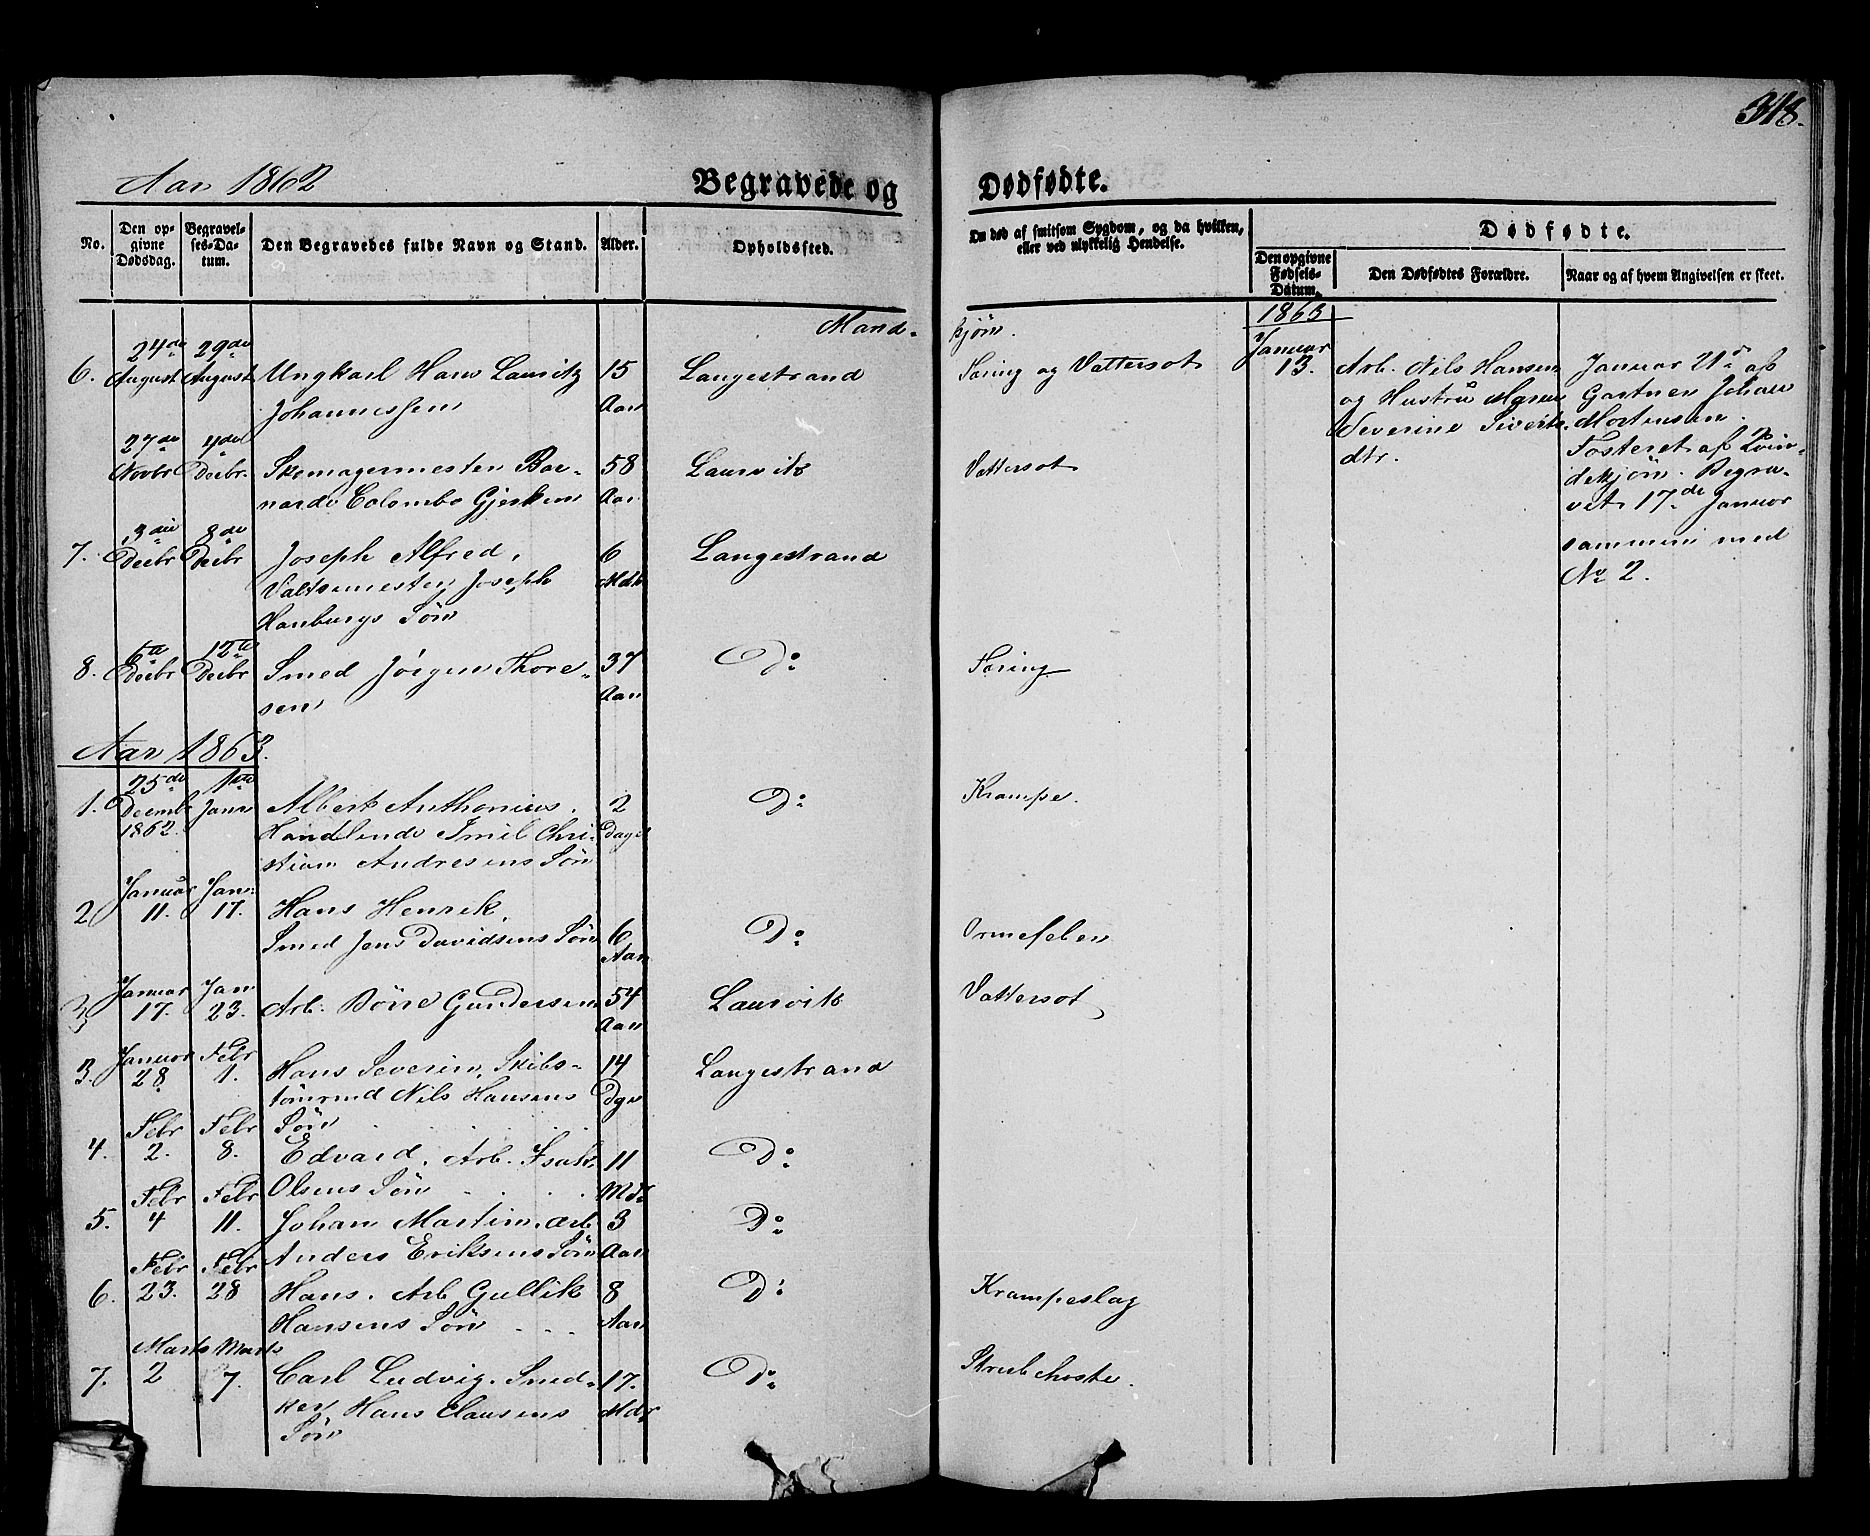 318.
Aar 1862
Begravede og Dødfødte.
No.
Den opgivne Dødsdag.
Begravelses-Datum.
Den Begravedes fulde Navn og Stand.
Alder.
Opholdssted.
Om død af smitsom Sygdom, og da hvilken, eller ved ulykkelig Hendelse.
Dødfødte.
Den opgivne Fødsels-Datum.
Den Dødfødtes Forældre.
Naar og af hvem Angivelsen er skeet.
Mandkjøn.
6. 24de August 29de August Ungkarl Hans Lauritz 15 Langestrand
Johannessen Aar
27de Novbr 4de Decbr Skomagermester Ber- 58 Laurvik Vattersot
nardo Colombo Gjerken Aar
7. 3die Decbr 8de Decbr Joseph Alfred, 6 Langestrand
Valtsemester Joseph Mdr
Hanburgs Søn
8. 6te Decbr 12te Decbr Smed Jørgen Thore- 37 Do Tæring
sen Aar
Aar 1863.
1. 25de Decemb 1862. 1ste Janr Albert Anthonius. 2 Do Krampe.
Handlende Emil Chri- Dage
stian Andresens Søn
2 Januar 11. Jan: 17. Hans Henrik,
Smed Jens Davidsens Søn 6 Aar Do Ormefeber
Januar 17. Jan 23. Arb. Børre Gundersen 54 Aar Laurvik Vattersot
3. Januar 28 Febr 1. Hans Severin, Skibs- 14 Langestrand
tømmd Nils Hansens Dge
Søn
4. Febr 2. Febr 8. Edvard. Arb. Isak 11 Do
Olsens Søn Mdr
5. Febr 4 Febr 11. Johan Martin. Arb 3 Do
Anders Eriksens Søn Aar
6. Febr 23. Febr 28 Hans. Arb Gullik 8 Do Krampeslag
Hansens Søn Aar
7. Marts 2 Marts 7. Carl Ludvig. Smed- 17. Do Strubehoste.
ker Hans Clausens Mdr
Søn
Tæring og Vattersot
1863
Januar
13.
Arb. Nils Hansen
og Hustru Maren
Severine Siverts-
dtr.
Januar 21de af
Gartner Johan
Mortensen.
Fosteret af Qvin-
dekjøn. Begra-
vet 17de Januar
sammen med
No 2.